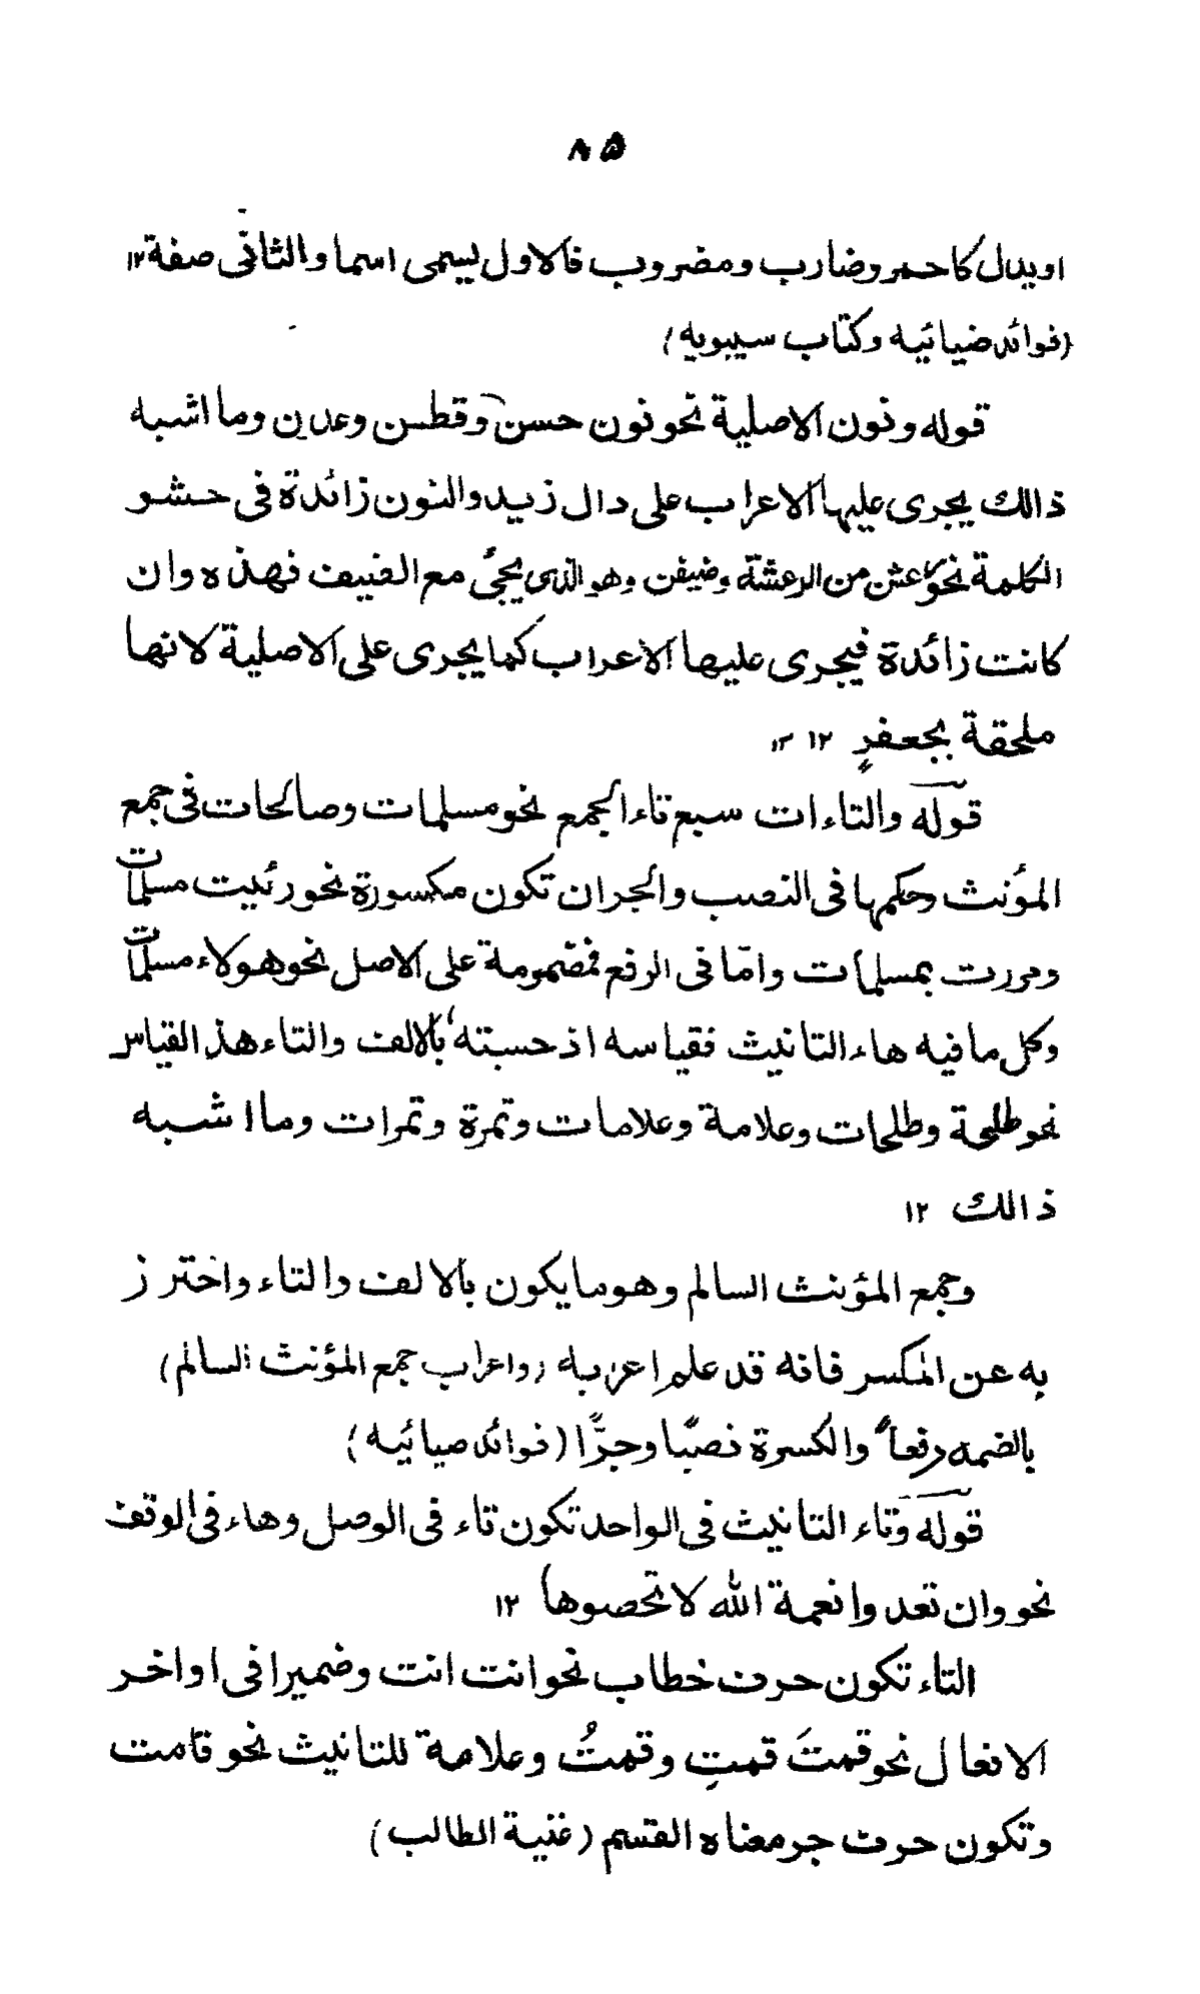 ۸۵
او يدل كاحمر وضارب ومضروب فالاول يسمى اسما والثانى صفة ۱۲
(فوائد ضيائيه وكتاب سيبويه)
قوله ونون الاصلية نحو نون حسن وقطن وعدن وما اشبه
ذالك يجرى عليها الاعراب على دال زيد والنون زائدة فى حشو
الكلمة نحو رعشن من الرعشة وضيفن وهو الذى يجئ مع الضيف فهذه وان
كانت زائدة فيجرى عليها الاعراب كما يجرى على الاصلية لانها
ملحقة بجعفرٍ ۱۲ ۱۲
قوله والتاءات سبع تاء الجمع نحو مسلمات وصالحات فى جمع
المؤنث وحكمها فى النصب والجران تكون مكسورة نحو رئيت مسلمات
ومررت بمسلمات وامّا فى الرفع فمضمومة على الاصل نحو هولاء مسلمات
وكل ما فيه هاء التانيث فقياسه اذ حسبته بالالف والتاء هذ القياس
نحو طلحة وطلحات وعلامة وعلامات وتمرة وتمرات وما اشبه
ذالك ۱۲
وجمع المؤنث السالم وهو ما يكون بالالف والتاء واخترز
به عن المكسر فانه قد علم اعرابه (واعراب جمع المؤنث السالم)
بالضمه رفعاً والكسرة نصبًا وجرًّا (فوائد صيائيه)
قوله وتاء التانيث فى الواحد تكون تاء فى الوصل وهاء فى الوقف
نحو وان تعدوا نعمة الله لا تحصوها) ۱۲
التاء تكون حرف خطاب نحو انت انت وضميرا فى اواخر
الافعال نحو قمتَ قمتِ وقمتُ وعلامة للتانيث نحو قامت
وتكون حرف جر معناه القسم (غنية الطالب)